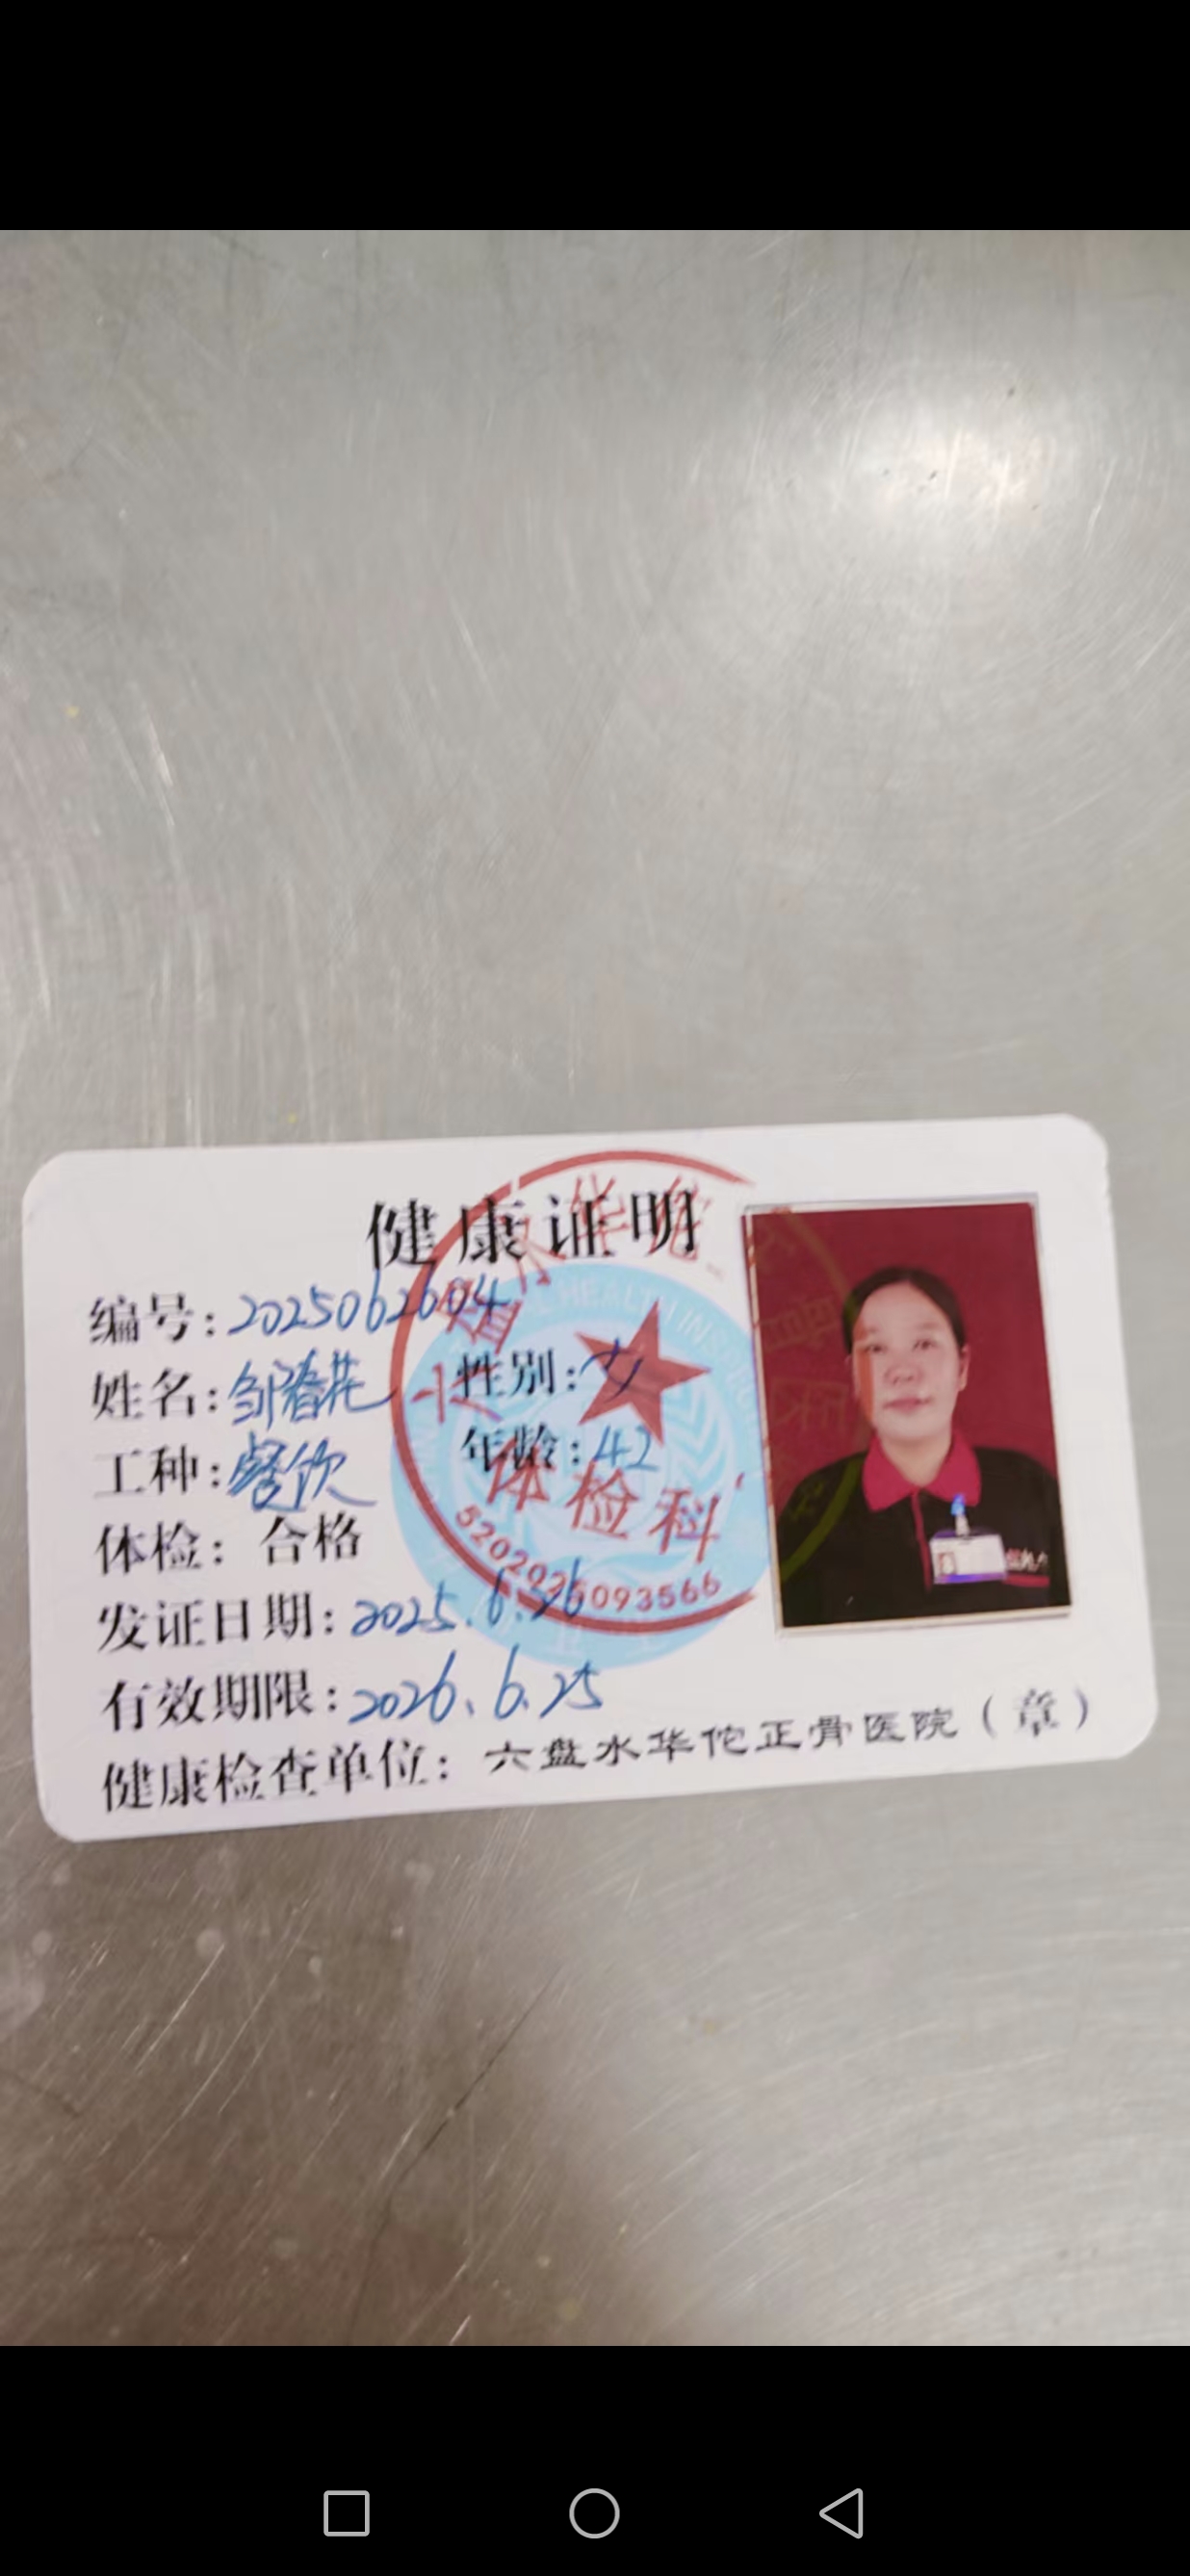 健康证明
编号:2025062604
姓名:邹春花 性别:女
工种:餐饮 年龄:42
体检: 合格
发证日期:2025.6.26
有效期限:2026.6.25
健康检查单位: 六盘水华佗正骨医院(章)
体检科